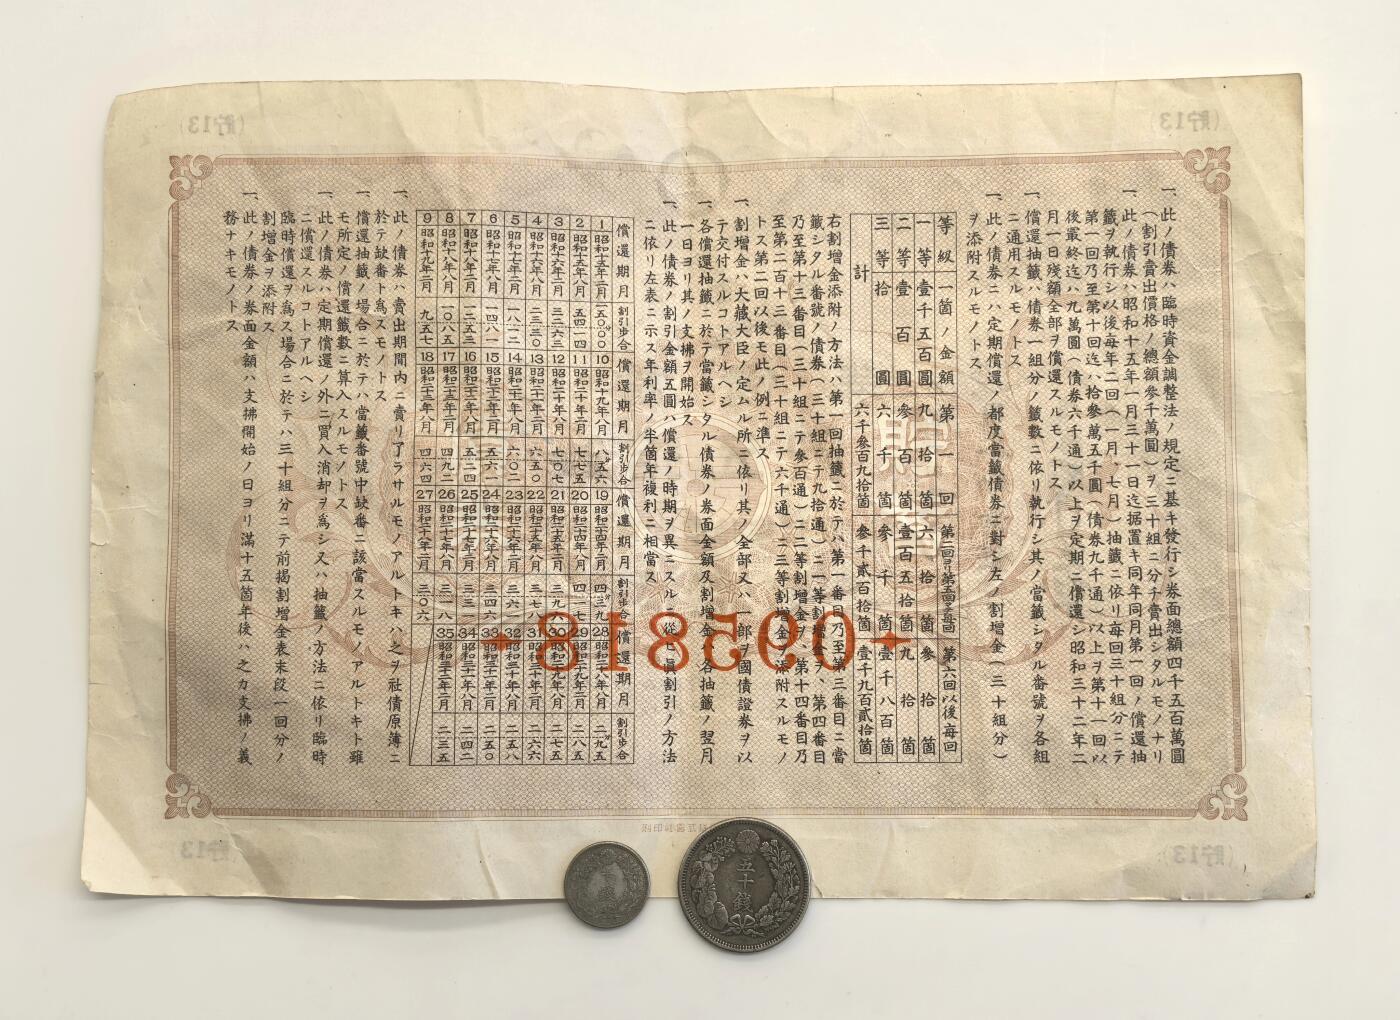 一、此ノ債券ハ臨時資金調整法ノ規定ニ基キ發行シ券面總額四千五百萬圓
(割引賣出價格ノ總額參千萬圓)ヲ三十組ニ分チ賣出シタルモノナリ
一、此ノ債券ハ昭和十五年一月三十一日迄据置キ同年同月第一回ノ償還抽
籤ヲ執行シ以後每年二回(一月、七月)抽籤ニ依リ每回三十組分ニテ
第一回乃至第十回迄ハ拾參萬五千圓(債券九千通)以上ヲ第十一回以
後最終迄ハ九萬圓(債券六千通)以上ヲ定期ニ償還シ昭和三十二年二
月一日殘額全部ヲ償還スルモノトス
一、償還抽籤ハ債券一組分ノ籤數ニ依リ執行シ其ノ當籤シタル番號ヲ各組
ニ通用スルモノトス
一、此ノ債券ニハ定期償還ノ都度當籤債券ニ對シ左ノ割增金(三十組分)
ヲ添附スルモノトス
等級 一箇ノ金額 第一回 第二回ヨリ第五回マデ每回 第六回以後每回
一等 壹千五百圓 九拾箇 六拾箇 參拾箇
二等 壹百圓 參百箇 壹百五拾箇 九拾箇
三等 拾圓 六千箇 參千箇 壹千八百箇
計 六千參百九拾箇 參千貳百拾箇 壹千九百貳拾箇
右割增金添附ノ方法ハ第一回抽籤ニ於テハ第一番目乃至第三番目ニ當
籤シタル番號ノ債券(三十組ニテ九拾通)ニ一等割增金ヲ、第四番目
乃至第十三番目(三十組ニテ參百通)ニ二等割增金ヲ、第十四番目乃
至第二百十三番目(三十組ニテ六千通)ニ三等割增金ヲ添附スルモノ
トス第二回以後モ此ノ例ニ準ス
一、割增金ハ大藏大臣ノ定ムル所ニ依リ其ノ全部又ハ一部ヲ國債證券ヲ以
テ交付スルコトアルヘシ
一、各償還抽籤ニ於テ當籤シタル債券ノ券面金額及割增金ハ各抽籤ノ翌月
一日ヨリ其ノ支拂ヲ開始ス
一、此ノ債券ノ割引金額五圓ハ償還ノ時期ヲ異ニスルニ從ヒ眞割引ノ方法
ニ依リ左表ニ示ス年利率ノ半箇年複利ニ相當ス
償還期月 割引步合 償還期月 割引步合 償還期月 割引步合 償還期月 割引步合
1 昭和十五年二月 一五〇・〇〇% 10 昭和十九年八月 八・五六% 19 昭和二十四年二月 四・三九% 28 昭和二十八年八月 二・九五%
2 昭和十五年八月 五四・一四 11 昭和二十年二月 七・七五 20 昭和二十四年八月 四・一七 29 昭和二十九年二月 二・八五
3 昭和十六年二月 三二・六三 12 昭和二十年八月 七・〇七 21 昭和二十五年二月 30 昭和二十九年八月 二・七五
4 昭和十六年八月 二三・三〇 13 昭和二十一年二月 六・五〇 22 昭和二十五年八月 31 昭和三十年二月 二・六六
5 昭和十七年二月 一八・一二 14 昭和二十一年八月 六・〇二 23 昭和二十六年二月 三・六一 32 昭和三十年八月 二・五八
6 昭和十七年八月 一四・八一 15 昭和二十二年二月 五・六一 24 昭和二十六年八月 三・四六 33 昭和三十一年二月 二・五〇
7 昭和十八年二月 一二・五三 16 昭和二十二年八月 五・二四 25 昭和二十七年二月 三・三一 34 昭和三十一年八月 二・四二
8 昭和十八年八月 一〇・八五 17 昭和二十三年二月 四・九二 26 昭和二十七年八月 三・一八 35 昭和三十二年二月 二・三五
9 昭和十九年二月 九・五七 18 昭和二十三年八月 四・六四 27 昭和二十八年二月 三・〇六
一、此ノ債券ハ賣出期間內ニ賣リ了ラサルモノアルトキハ之ヲ社債原簿ニ
於テ缺番ト爲スモノトス
一、償還抽籤ノ場合ニ於テハ當籤番號中缺番ニ該當スルモノアルトキト雖
モ所定ノ償還籤數ニ算入スルモノトス
一、此ノ債券ハ定期償還ノ外ニ買入消却ヲ爲シ又ハ抽籤ノ方法ニ依リ臨時
ニ償還スルコトアルヘシ
臨時償還ヲ爲ス場合ニ於テハ三十組分ニテ前揭割增金表末段一回分ノ
割增金ヲ添附ス
一、此ノ債券ノ券面金額ハ支拂開始ノ日ヨリ滿十五箇年後ハ之カ支拂ノ義
務ナキモノトス
095818
(貯13)
(貯13)
(貯13)
(貯13)
五十錢